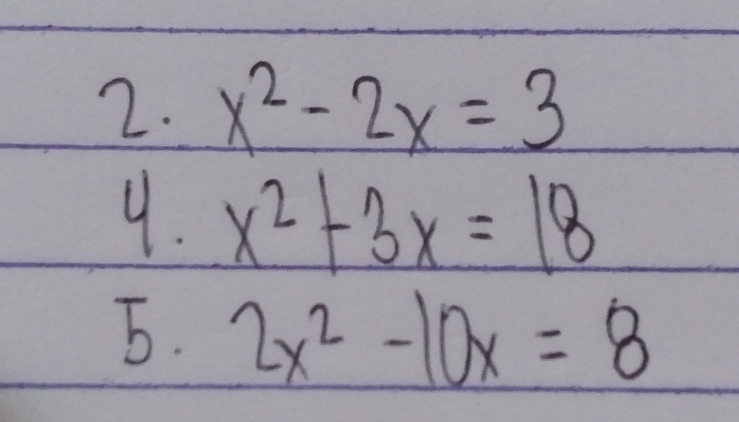 2. x² - 2x = 3
4. x² + 3x = 18
5. 2x² - 10x = 8